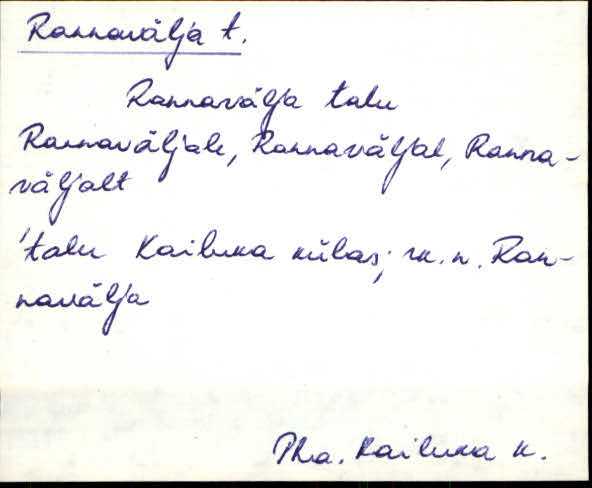 Rannavälja t.
Rannavälja talu
Rannaväljale, Rannaväljal, Ranna-
väljalt
'talu Kailuka külas; rk. n. Ran-
navälja
Pha. Kailuka k.